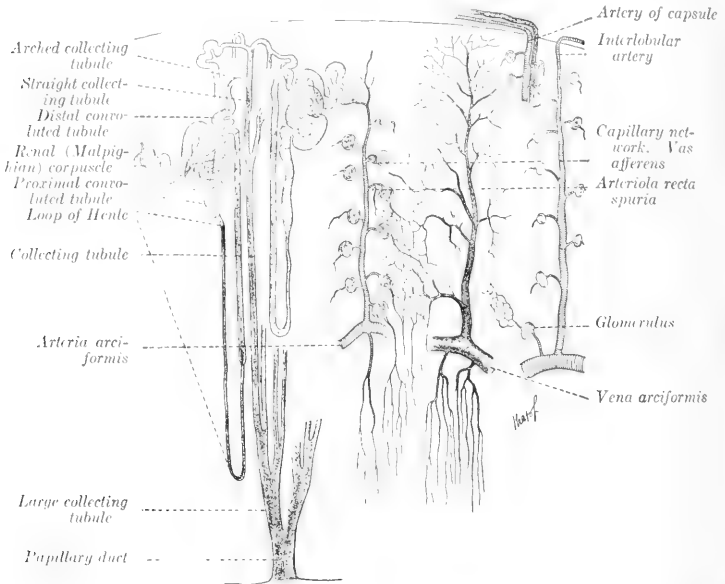 Arched collecting
tubule
Straight collect-
ing tubule
Distal convo-
luted tubule
Renal (Malpig-
hian) corpuscle
Proximal convo-
luted tubule
Loop of Henle
Collecting tubule
Arteria arci-
formis
Large collecting
tubule
Papillary duct
Artery of capsule
Interlobular
artery
Capillary net-
work. Vas
afferens
Arteriola recta
spuria
Glomerulus
Vena arciformis